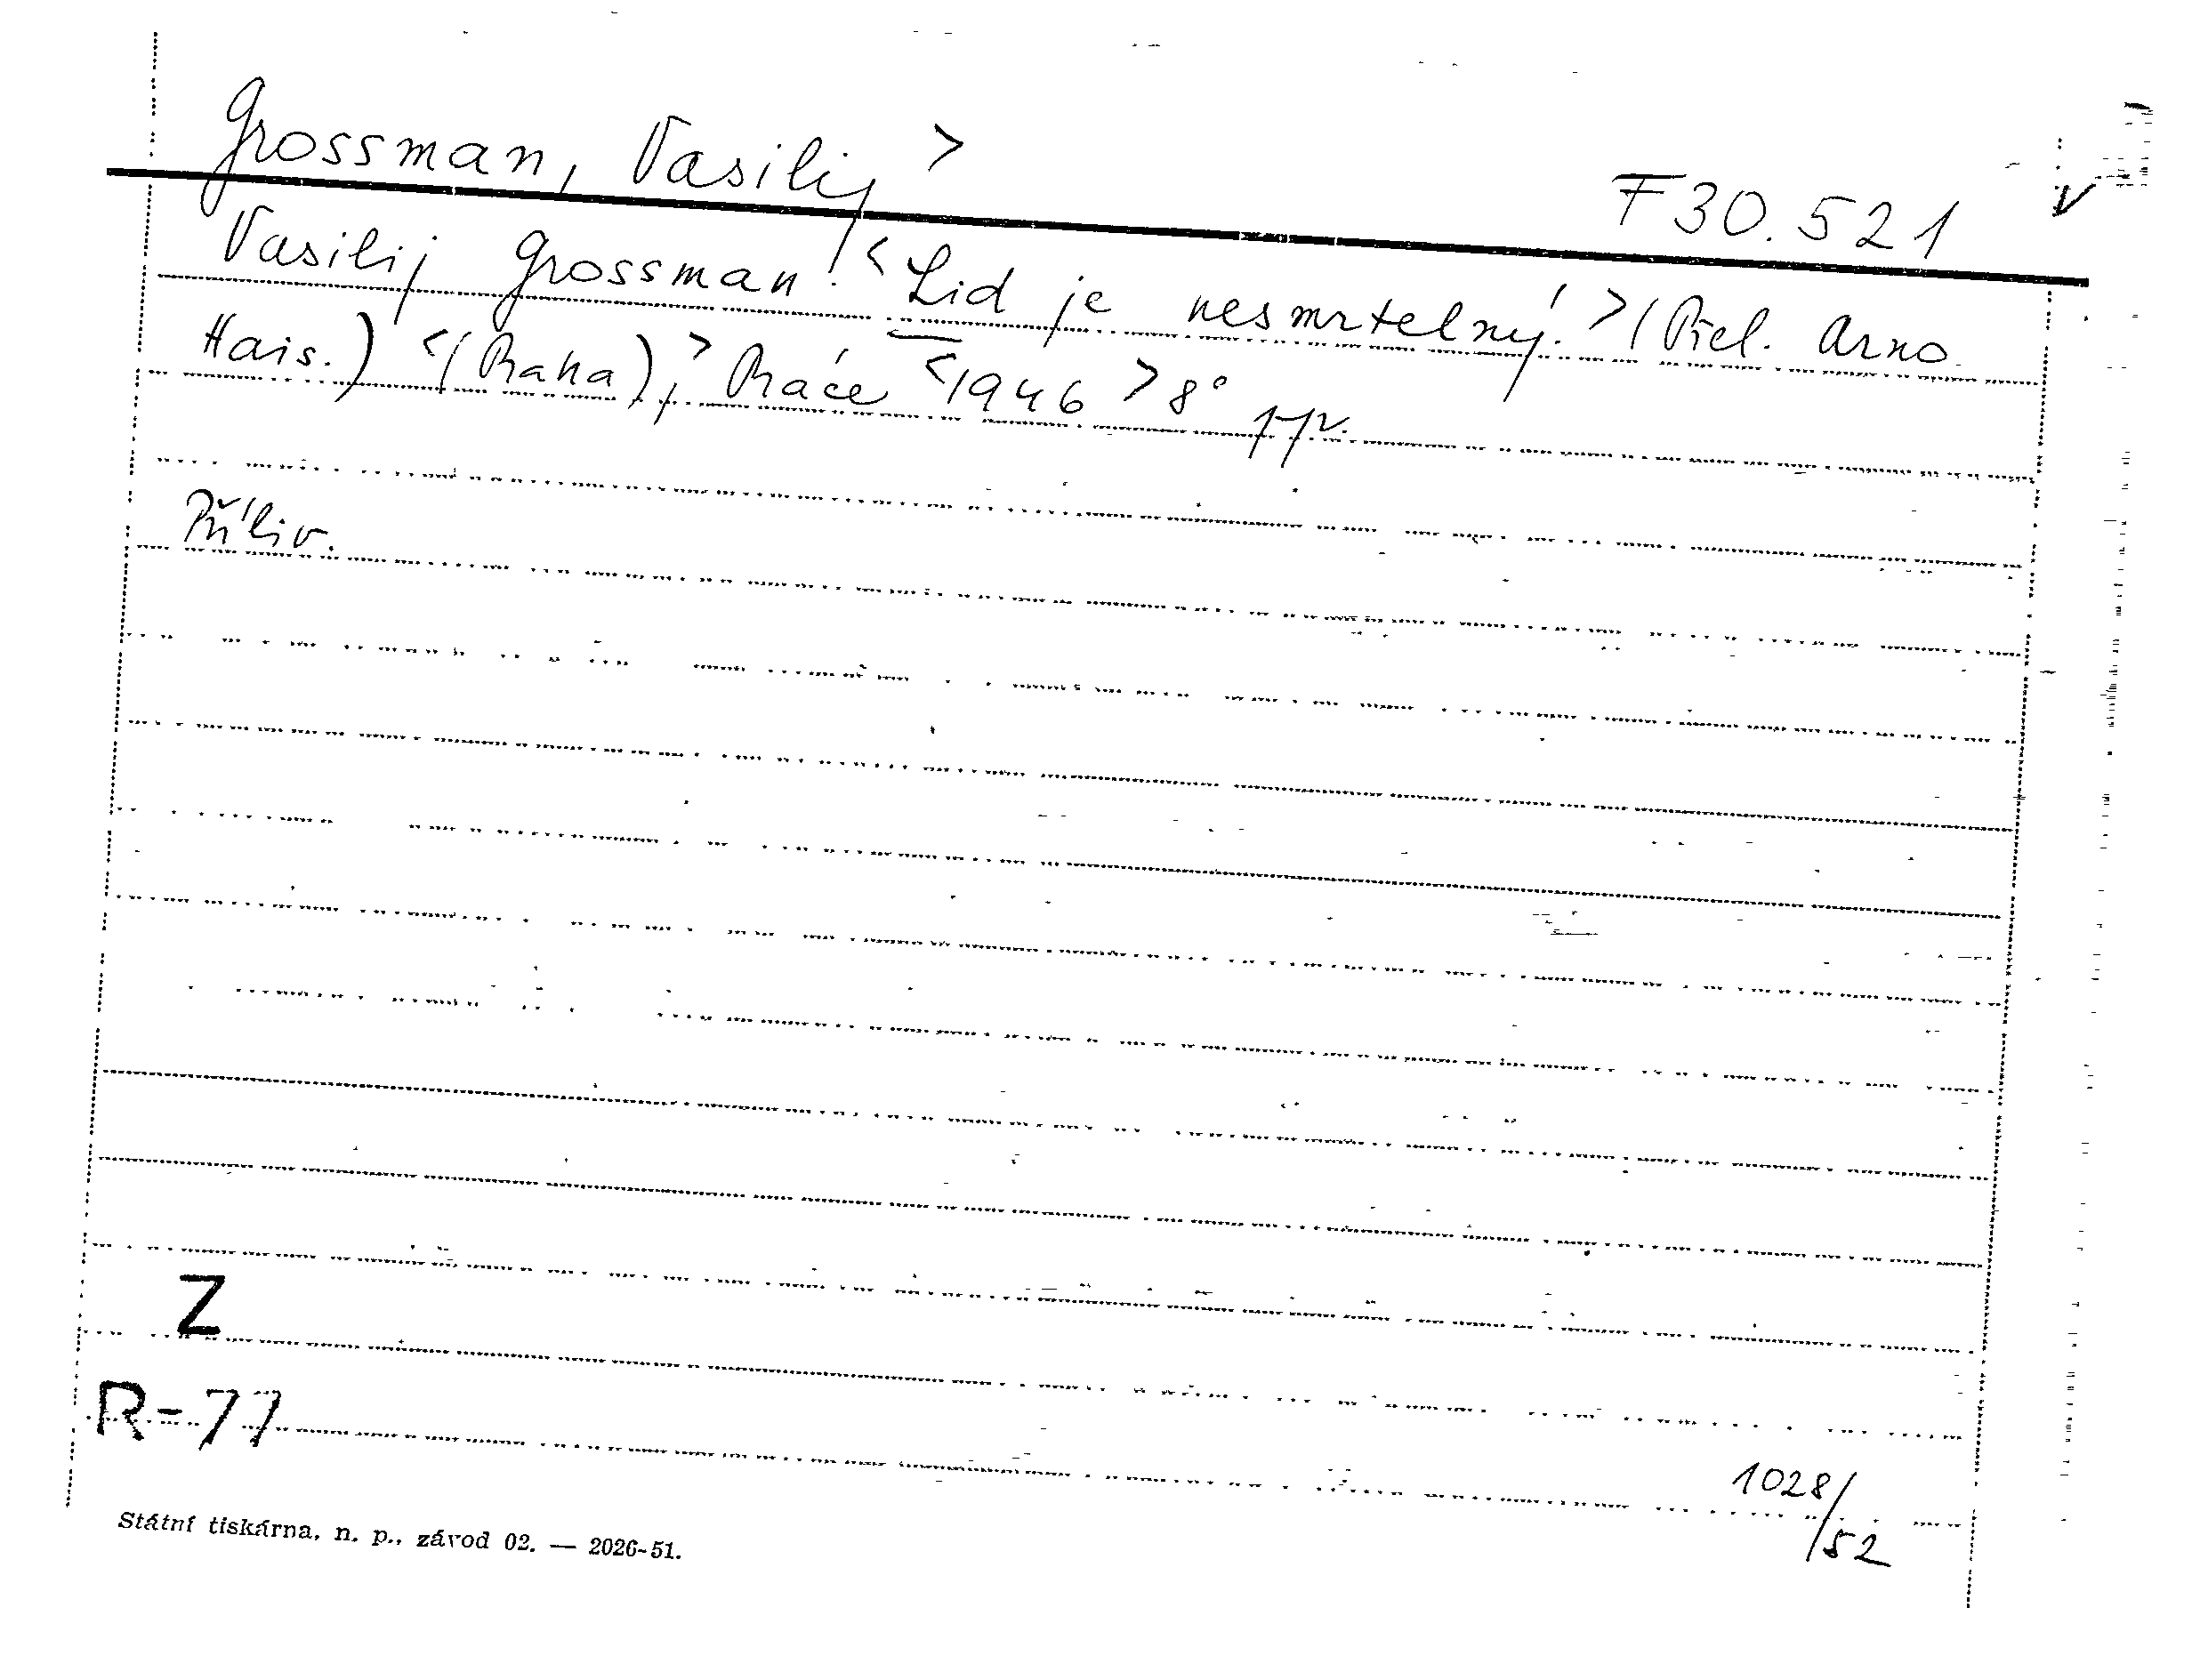 Grossman, Vasilij >
F 30.521 V
Vasilij Grossman: < Lid je nesmrtelný. > (Přel. Arno
Hais.) < (Praha), > Práce < 1946 > 8°
Příliv.
Z
R-77
1028/52
Státní tiskárna, n. p., závod 02. — 2026-51.